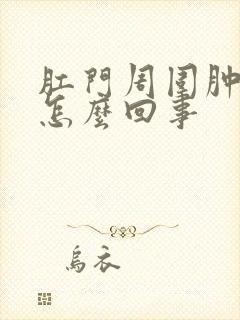 肛門周圍肿
怎麼回事
烏衣